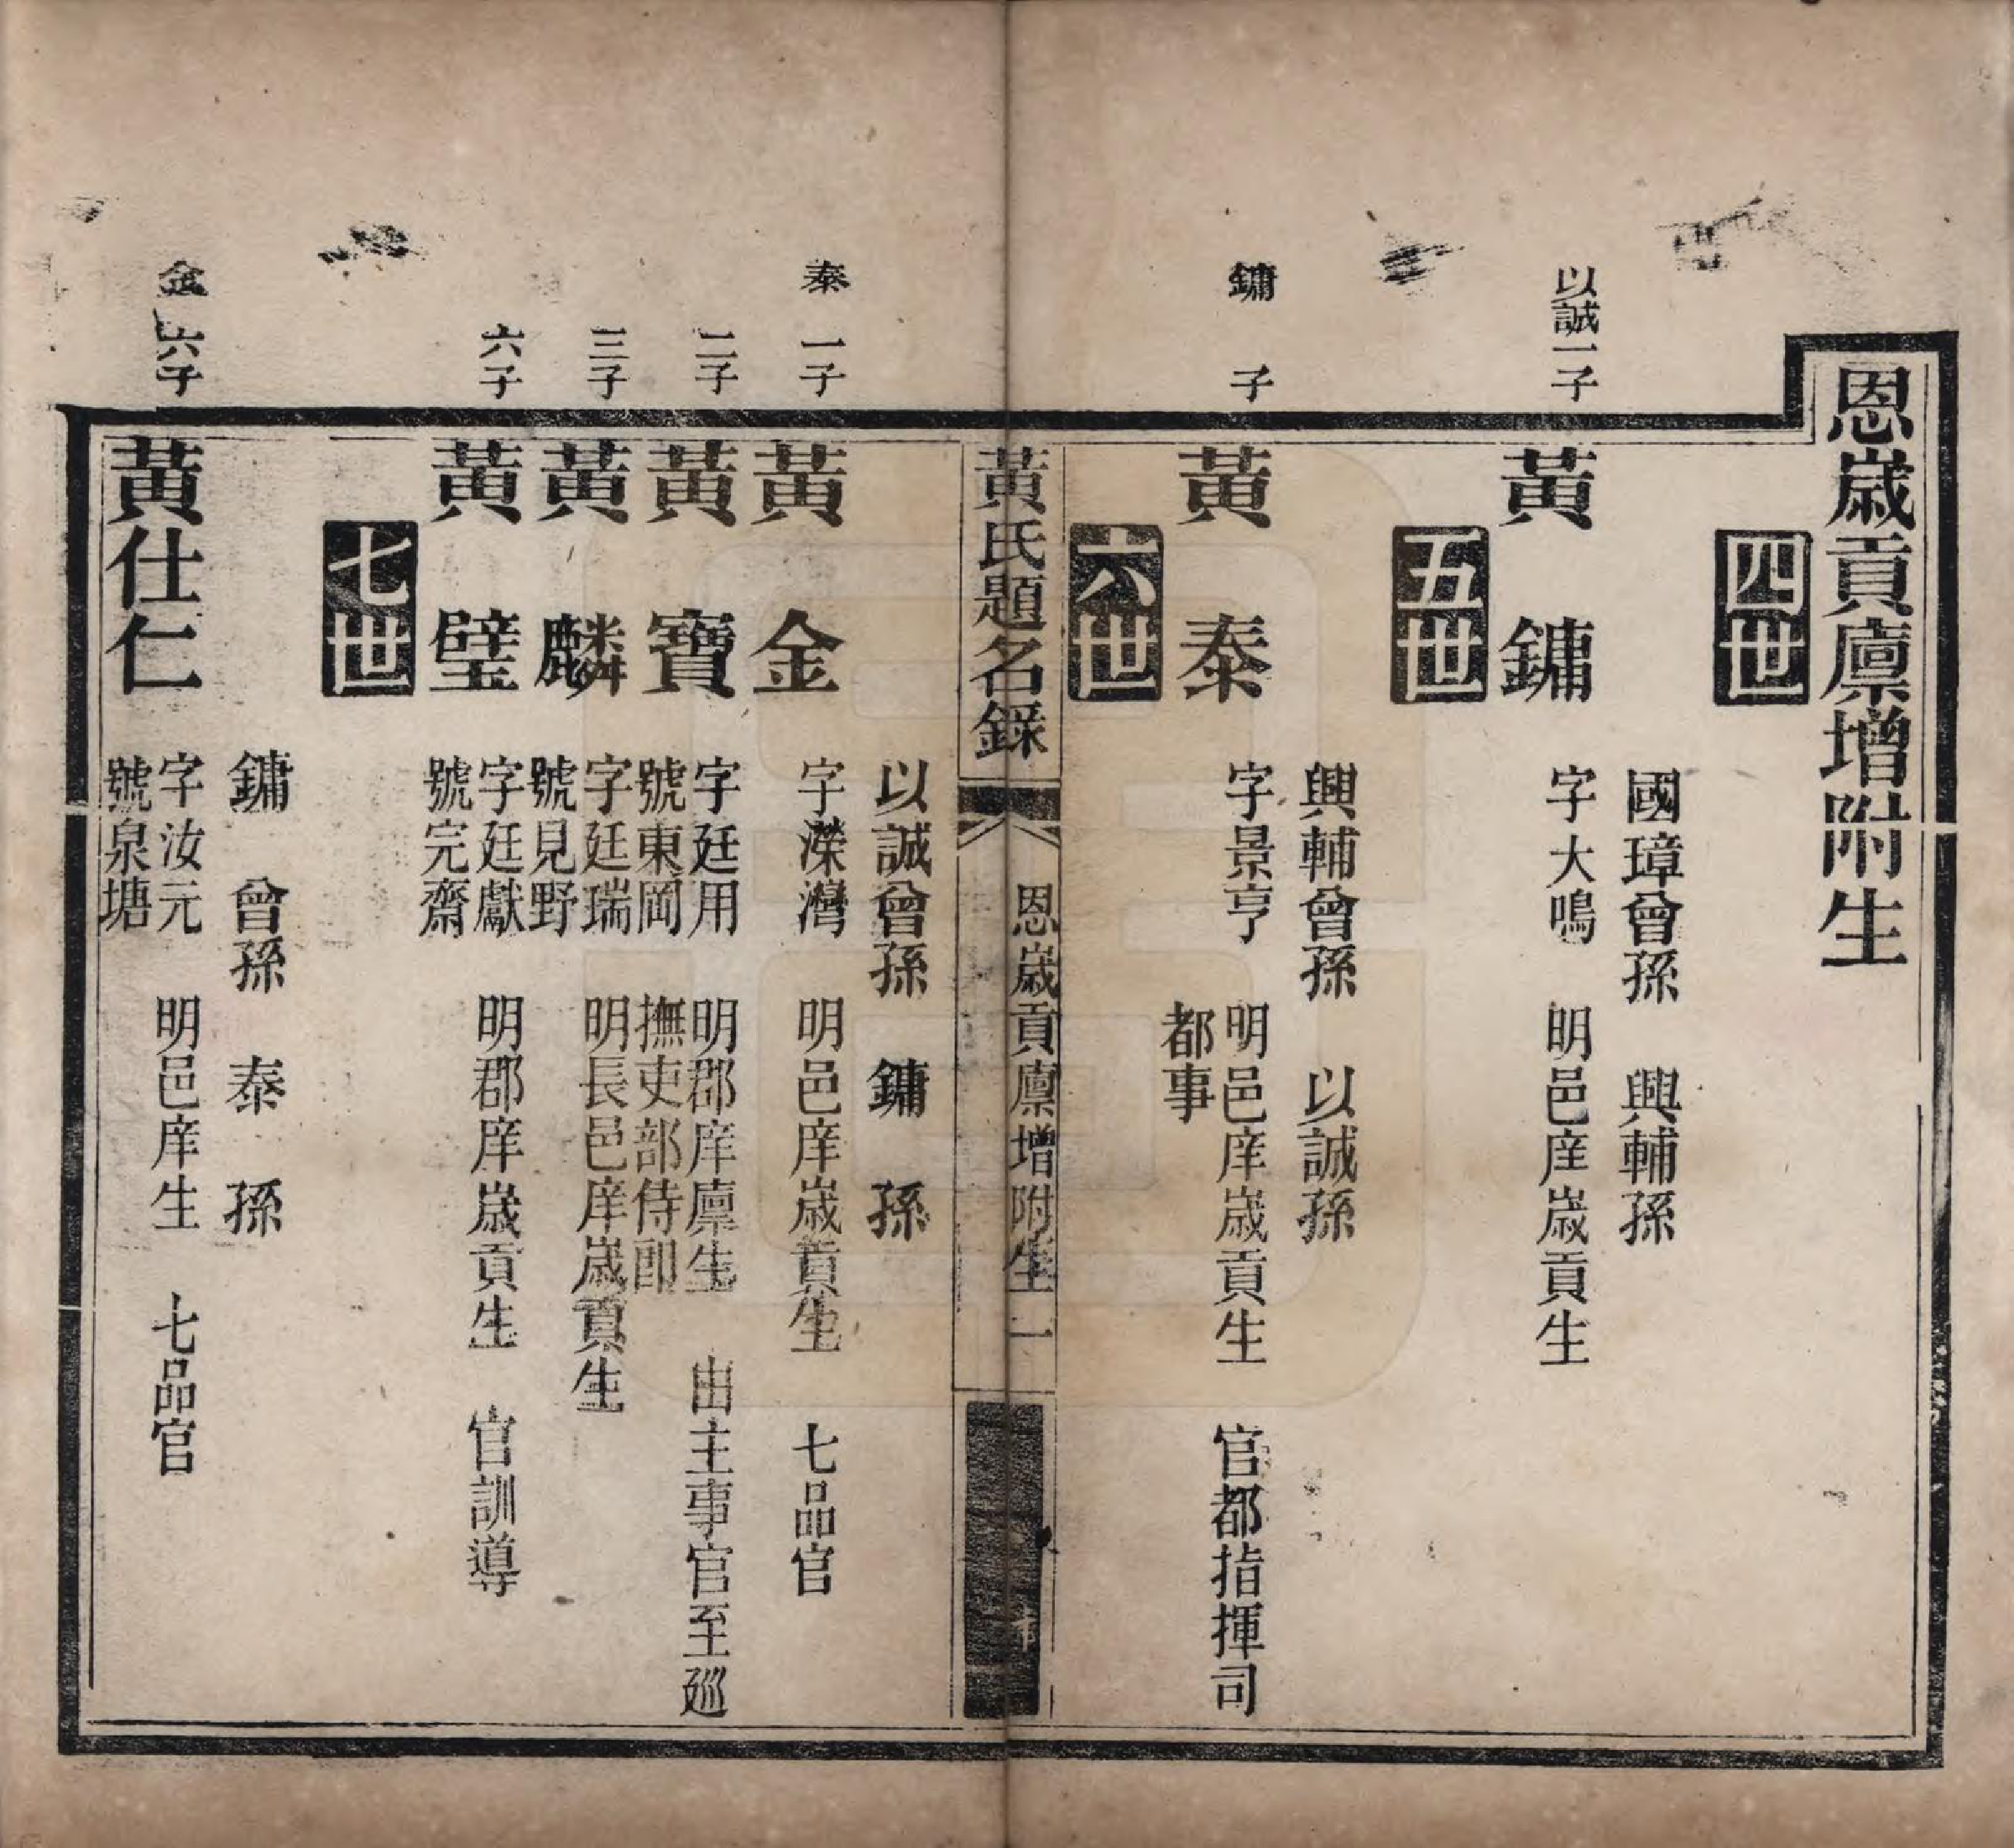 恩歲貢廩增附生
四世
國璋曾孫　興輔孫
以誠一子
黃鏞　字大鳴　明邑庠歲貢生
五世
興輔曾孫　以誠孫
鏞　子
黃泰　字景亨　明邑庠歲貢生　官都指揮司
都事
六世
黃氏題名錄　恩歲貢廩增附生　一
以誠曾孫　鏞　孫
泰　一子
黃金　字濚灣　明邑庠歲貢生　七品官
二子
黃寶　字廷用　明郡庠廩生　由主事官至巡
號東岡　撫吏部侍郎
三子
黃麟　字廷瑞　明長邑庠歲貢生
號見野
六子
黃璧　字廷獻　明郡庠歲貢生　官訓導
號完齋
七世
鏞　曾孫　泰　孫
金　六子
黃仕仁　字汝元　明邑庠生　七品官
號泉塘